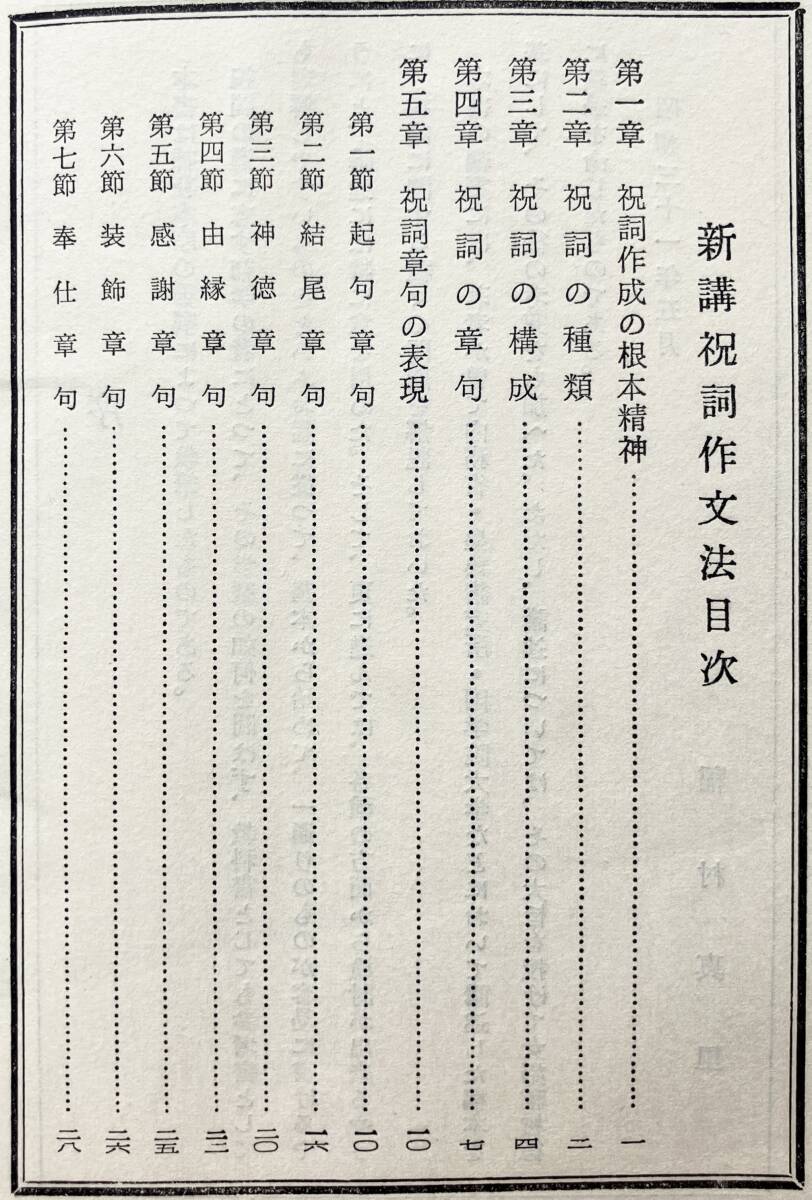 新講祝詞作文法目次
第一章 祝詞作成の根本精神……一
第二章 祝詞の種類……二
第三章 祝詞の構成……四
第四章 祝詞の章句……七
第五章 祝詞章句の表現……一〇
第一節 起句章句……一〇
第二節 結尾章句……一六
第三節 神徳章句……二〇
第四節 由縁章句……二三
第五節 感謝章句……二五
第六節 装飾章句……二六
第七節 奉仕章句……二八